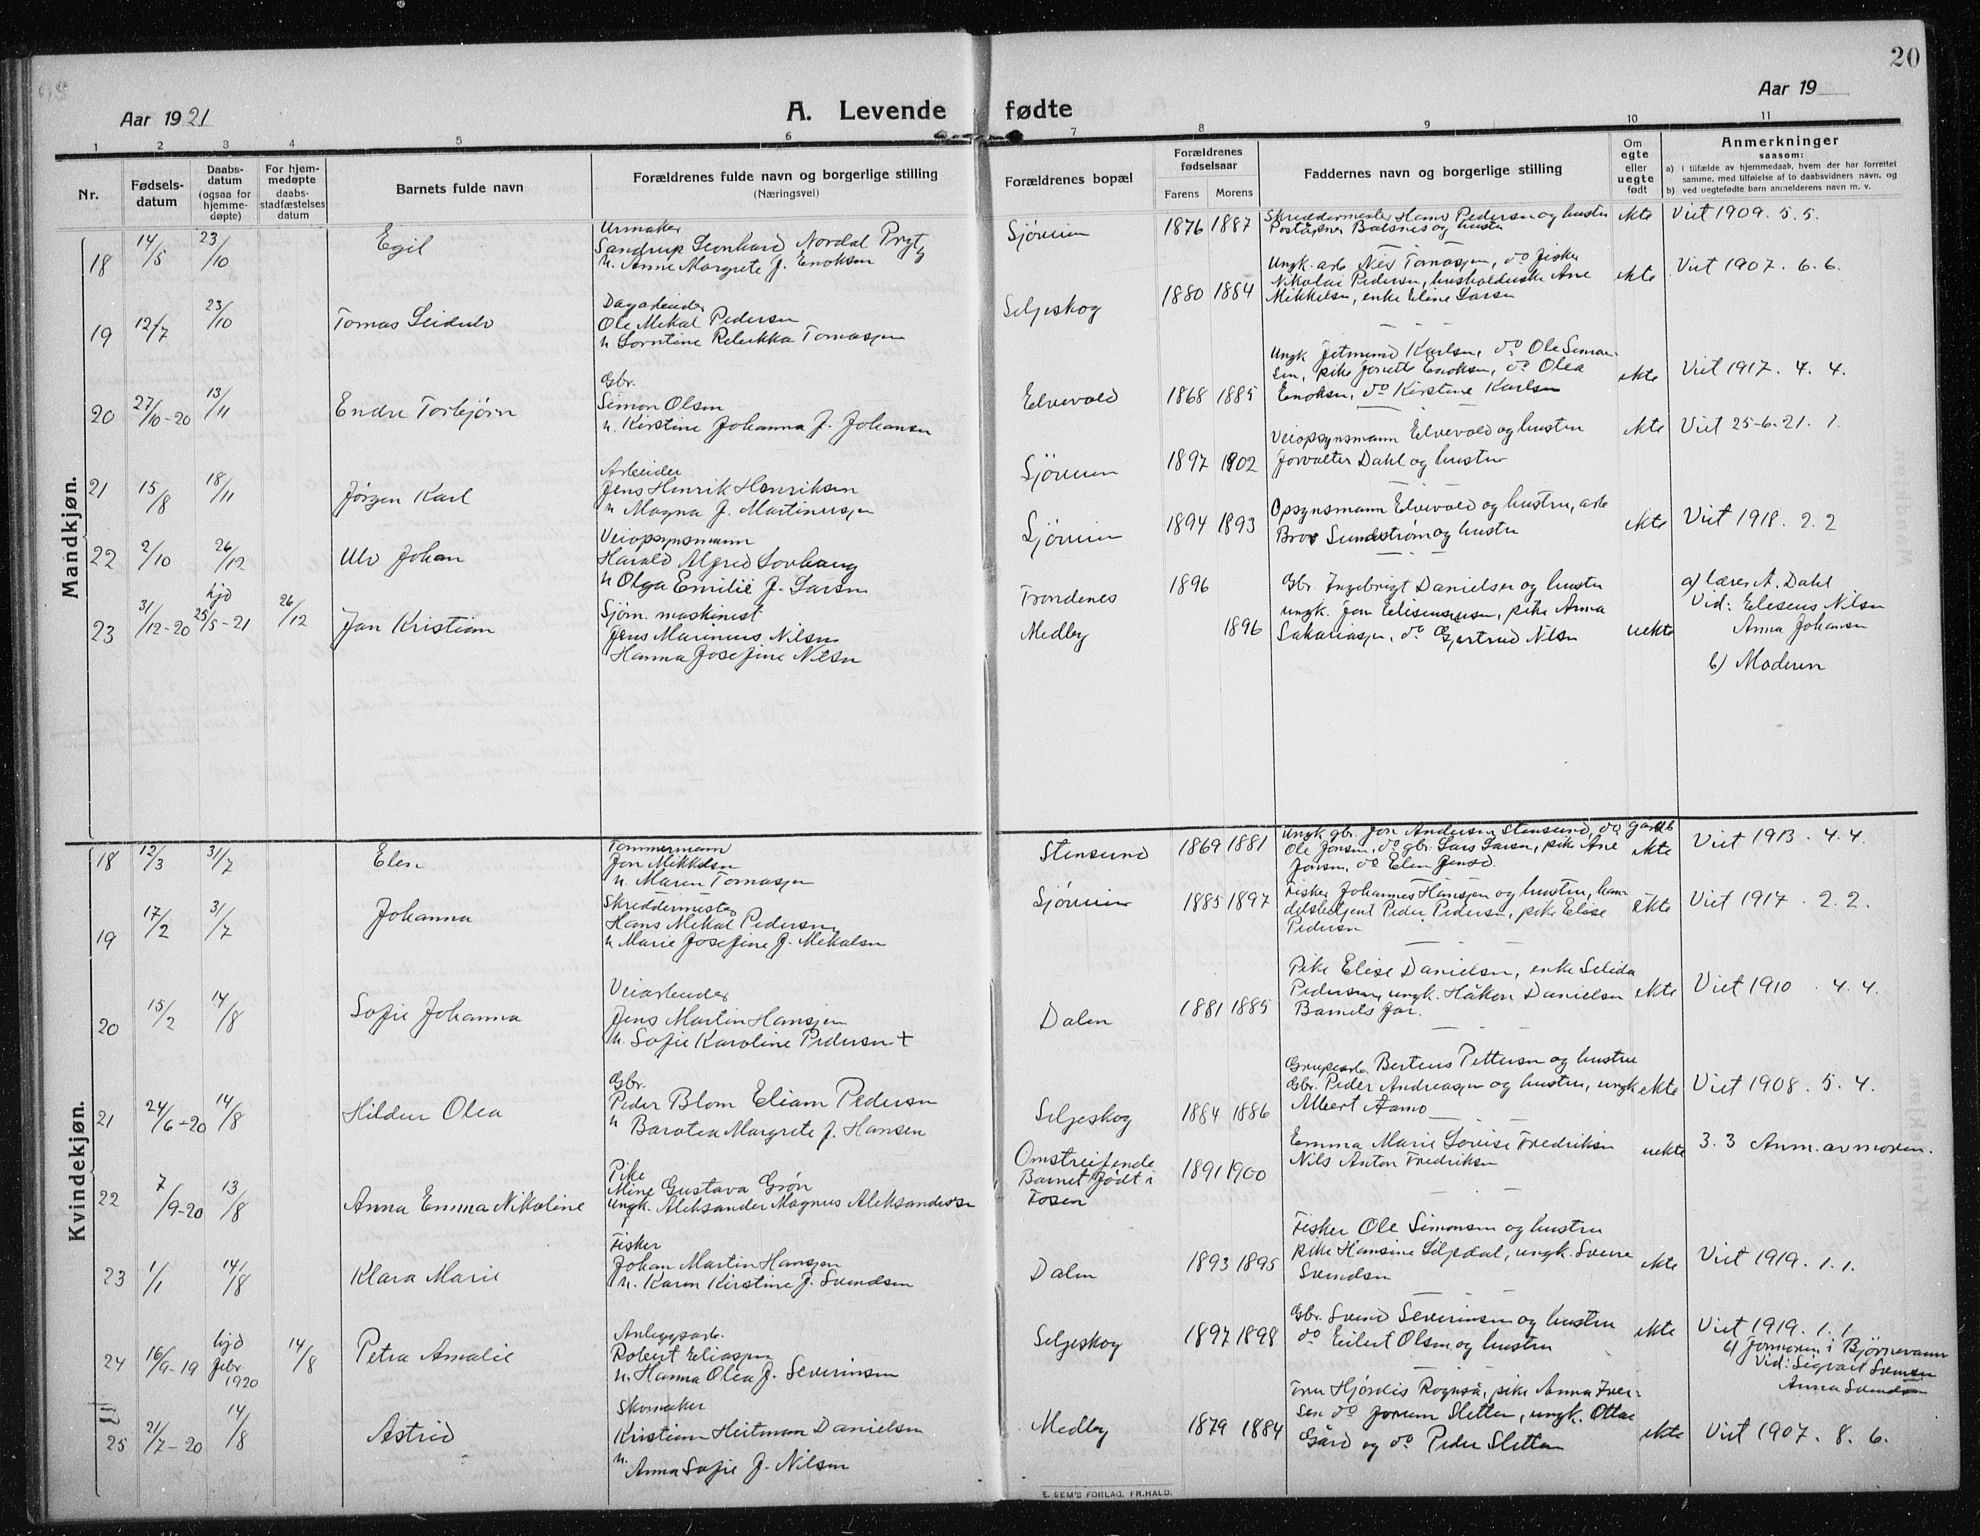 20
Aar 1921
A. Levende fødte
Aar 19
1 2 3 4 5 6 7 8 9 10 11
Nr.
Fødsels-
datum
Daabs-
datum
(ogsaa for
hjemme-
døpte)
For hjem-
medøpte
daabs-
stadfæstelses
datum
Barnets fulde navn
Forældrenes fulde navn og borgerlige stilling
(Næringsvei)
Forældrenes bopæl
Forældrenes
fødselsaar
Farens Morens
Faddernes navn og borgerlige stilling
Om
egte
eller
uegte
født
Anmerkninger
saasom:
a) i tilfælde av hjemmedaab, hvem der har forrettet
samme, med tilføielse af to daabsvidners navn, og
b) ved uegtefødte barn anmelderens navn m. v.
Mandkjøn.
18 14/5 23/10 Egil
Urmaker
Sandrup Leonhard Nordal Prytz
h. Anne Margrete f. Enoksen
Sjøveien 1876 1887
Skreddermester Hans Pedersen og hustru
Postaapner Balsnes og hustru
ekte Viet 1909. 5. 5.
19 12/7 23/10 Tomas Leidulv
Dagarbeider
Ole Mekal Pedersen
h Lorntine Rebekka Tomasjen
Seljeskog 1880 1884
Ungk. arb. Nils Tomasjen, do fisker
Nikolai Pedersen, husholderske Ane
Mikkelsen, enke Elene Larsen
ekte Viet 1907. 6. 6.
20 27/10-20 13/11 Endre Torbjørn
Gbr.
Simon Olsen
h. Kirstine Johanna f. Johansen
Elvevold 1868 1885
Ungk Jetmund Karlsen, do Ole Simon-
sen, pike Jonette Enoksen, do Olea
Enoksen, do Kirstine Karlsen
ekte Viet 1917. 4. 4.
21 15/8 18/11 Jørgen Karl
Arbeider
Jens Henrik Henriksen
h Magna f. Martinusjen
Sjøveien 1897 1902
Veiopsynsmann Elvevold og hustru
Forvalter Dahl og hustru
ekte Viet 25-6-21. 1.
22 2/10 26/12 Ulv Johan
Veiopsynsmann
Harald Alfred Lovhaug
h Olga Emilie f. Larsen
Sjøveien 1894 1893
Opsynsmann Elvevold og hustru, arb
Bror Sundstrøm og hustru
ekte Viet 1918. 2. 2
23 31/12-20 hjd 25/5-21 26/12 Jan Kristian
Sjøm. maskinist
Jens Marenius Nilsen
Hanna Josefine Nilsen
Trondenes 1896
Medby 1896
Gbr Ingebrigt Danielsen og hustru
ungk. Jon Eliseussen, pike Anna
Sakariasjen, do Gjertrud Nilsen
uekte
a) lærer A. Dahl
Vid: Eliseus Nilsen
Anna Johansen
b) Moderen
Kvindekjøn.
18 12/3 31/7 Elen
Tømmermann
Jon Mikkelsen
h. Maren Tomasjen
Stensund 1869 1881
Ungk gbr. Jon Andersen Stensund, do gaardb
Ole Jonsen, do gbr. Lars Larsen, pike Ane
Jonsen, do Elen
ekte Viet 1913. 4. 4.
19 17/2 31/7 Johanna
Skreddermester
Hans Mekal Pedersen
h Marie Josefine f. Mekalsen
Sjøveien 1885 1897
Fisker Johannes Hansjen og hustru, han-
delsbetjent Peder Pedersen, pike Elise
Pedersen
ekte Viet 1917. 2. 2.
20 15/2 14/8 Sofie Johanna
Veiarbeider
Jens Martin Hansjen
h. Sofie Karoline Pedersen +
Dalen 1881 1885
Pike Elise Danielsen, enke Selida
Pedersen, ungk. Håkon Danielsen
Barnets far.
ekte Viet 1910. 4. 4.
21 24/6-20 14/8 Hildur Olea
Gbr.
Peder Blom Eliam Pedersen
h Barotea Margrete f. Hansen
Seljeskog 1884 1886
Grubearb. Berteus Pettersen og hustru
Gbr. Peder Andreasjen og hustru, ungk
Albert Aamo
ekte Viet 1908. 5. 4.
22 7/9-20 13/8 Anna Emma Nikoline
Pike
Mine Gustava Grøn
ungk. Aleksander Magnus Aleksandersen
Omstreifende
Barnet født i
Fosen
1891 1900
Emma Marie Lovise Fredriksen
Nils Anton Fredriksen
uekte 3. 3 Anm. av moren.
23 1/1 14/8 Klara Marie
Fisker
Johan Martin Hansjen
h. Karen Kirstine f. Svendsen
Dalen 1893 1895
Fisker Ole Simonsen og hustru
pike Hansine Liljedal, ungk. Sverre
Svendsen
ekte Viet 1919. 1. 1.
24 16/9-19 hjd febr 1920 14/8 Petra Amalie
Anlegsarb.
Robert Eliasjen
h. Hanna Olea f. Severinsen
Seljeskog 1897 1898
Gbr. Svend Severinsen og hustru
do Eilert Olsen og hustru
ekte Viet 1919. 1. 1.
Formoren i Bjørnevann
Vid: Sigvart Svensen
Anna Svendsen
25 21/7-20 14/8 Astrid
Skomaker
Kristian Heitman Danielsen
h. Anna Sofie f. Nilsen
Medby 1879 1884
Fru Hjørdis Rognså, pike Anna Iver-
sen do Jorunn Sletten, ungk. Ottar
Gård og do Peder Sletten
ekte Viet 1907. 8. 6.
E. SEM'S FORLAG, FR.HALD.